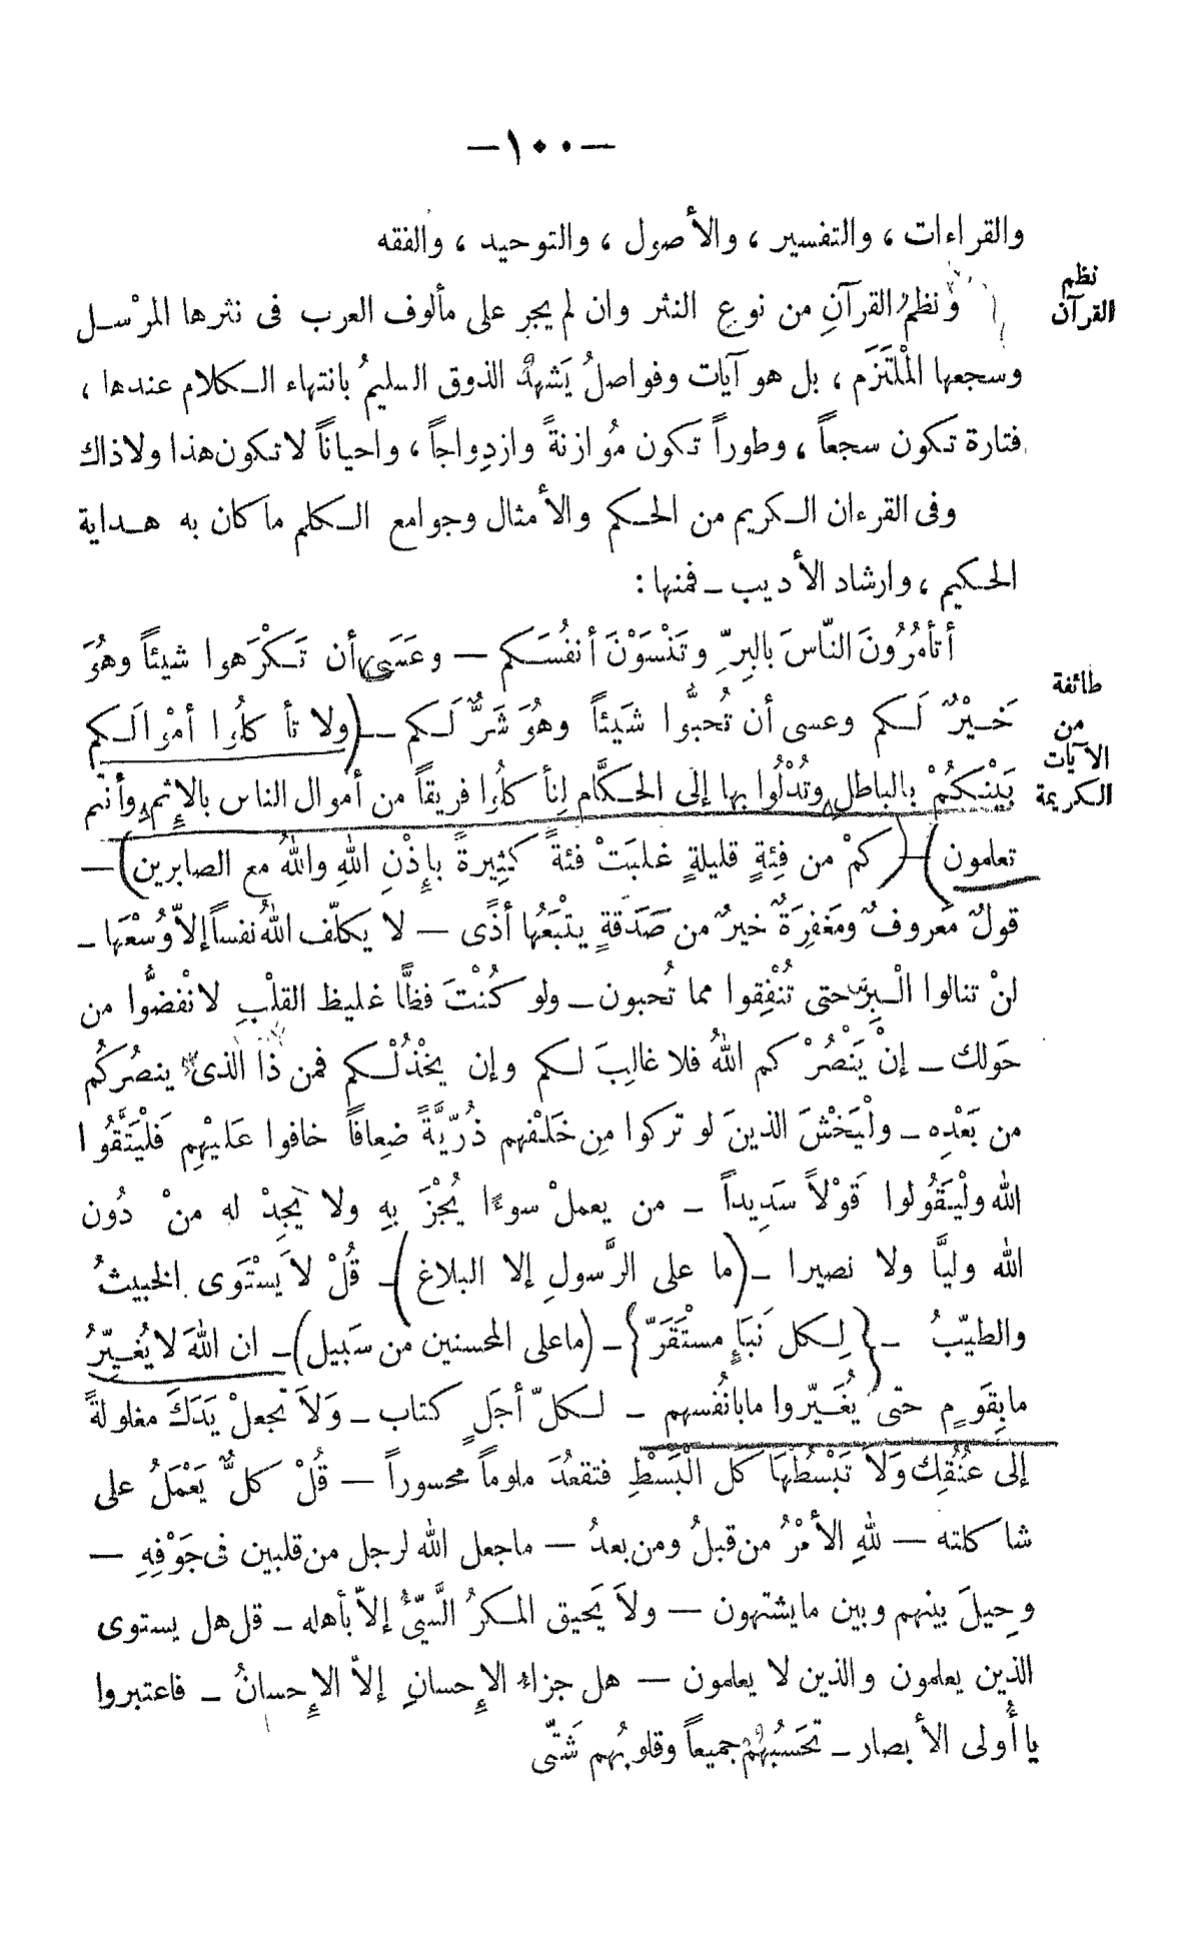 —١٠٠—
والقراءات ، والتفسير ، والأصول ، والتوحيد ، والفقه
نظم
القرآن
ونظمُ القرآنِ من نوعِ النثر وان لم يجرِ على مألوف العرب فى نثرها المرْسل
وسجعها المْلتَزَم ، بل هو آيات وفواصلُ يَشهدُ الذوق السليمُ بانتهاء الكلام عندها ،
فتارة تكون سجعاً ، وطوراً تكون مُوازنةً وازدِواجاً ، واحياناً لا تكون هذا ولا ذاك
وفى القرءان الكريم من الحكم والأمثال وجوامع الكلم ما كان به هداية
الحكيم ، وارشاد الأديب ــ فمنها :
أتأمُرُونَ النّاسَ بالبِرِّ وتَنْسَوْنَ أنفُسَكم — وعَسَى أن تَكْرَهوا شيئاً وهُوَ
طائفة
من
الآيات
الكريمة
خَيْرٌ لَكم وعسى أن تُحبُّوا شَيئاً وهُوَ شَرٌّ لَكم — ( ولا تأكلُوا أمْوالَكم
بَيْنَكُمْ بالباطل وتُدْلُوا بها إلَى الحكَّام لِتأكلُوا فريقاً من أموال الناس بالإِثم وأنتم
تعلمون ) — ( كمْ من فِئةٍ قليلةٍ غلبَتْ فئةً كثِيرةً بإِذْنِ اللهِ واللهُ مع الصابرين ) —
قولٌ مَعروفٌ ومَغفِرَةٌ خيرٌ من صَدَقةٍ يتْبَعُها أذًى — لا يكلّف اللهُ نفساً إلاّ وُسْعَها ــ
لنْ تنالوا الْبِرَّ حتى تُنْفِقوا مما تُحبون ــ ولو كُنْتَ فظًّا غليظ القلْبِ لانْفضُّوا من
حَولك ــ إنْ يَنْصُرْكم اللهُ فلا غالِبَ لكم وإن يخْذُلْكم فمن ذَا الذى ينصُركُم
من بَعْدِه ــ ولْيَخْشَ الذينَ لو تركوا مِن خَلفْهم ذُرّيَّةً ضِعافاً خافوا عَليْهِم فَلْيَتَّقُوا
الله ولْيَقُولوا قَوْلاً سَدِيداً ــ من يعملْ سوءًا يُجْزَ بهِ ولا يَجِدْ له منْ دُون
الله وليَّا ولا نصيرا ــ ( ما على الرَّسولِ إلا البلاغ ) ــ قُلْ لاَ يَسْتَوى الخبيثُ
والطيّبُ ــ { لِكل نَبَإٍ مستْقَرّ } ــ ( ما على المحسنين من سَبيل ) ــ ان اللهَ لا يُغيِّرُ
ما بِقَومٍ حتى يُغَيّروا ما بانُفسهم ــ لكلّ أجَلٍ كتاب ــ وَلاَ تَجعلْ يَدَكَ مغلولةً
إلى عُنُقِك وَلاَ تَبْسُطْهَا كلَّ الْبَسْطِ فتقعُدَ ملوماً محسوراً — قُلْ كلٌّ يَعْمَلُ على
شاكلته — للهِ الأمْرُ من قبلُ ومن بعدُ — ما جعل الله لرجل من قلبين فى جَوْفِهِ —
وحِيلَ بينهم وبين ما يشتهون — ولاَ يَحيق المكرُ السَّيّئُ إلاّ بأهله ــ قل هل يستوى
الذين يعلمون والذين لا يعلمون — هل جزاء الإِحسانِ إلاّ الإِحسانُ ــ فاعتبروا
يا أُولى الأبصار ــ تحَسَبُهُمْ جميعاً وقلوبُهم شَتّى